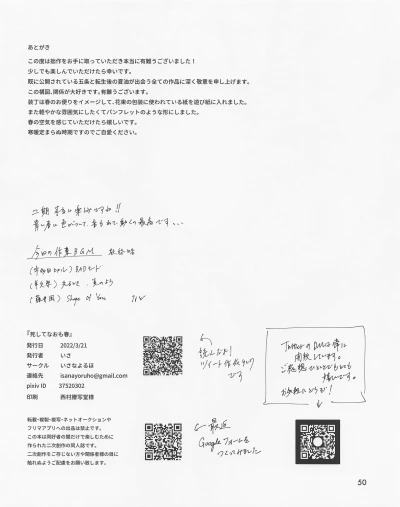 あとがき
この度は拙作をお手に取っていただき本当に有難うございました！
少しでも楽しんでいただけたら幸いです。
既に公開されている五条と転生後の夏油が出会う全ての作品に深く敬意を申し上げます。
この構図、関係が大好きです。有難うございます。
装丁は春のお便りをイメージして、花束の包装に使われている紙を遊び紙に入れました。
また軽やかな雰囲気にしたくてパンフレットのような形にしました。
春の空気を感じていただけたら嬉しいです。
寒暖定まらぬ時期ですのでご自愛ください。
二期 本当に楽しみですね!!
今日の作業BGM 敬称略
Shape of You
読んだよ!
ツイート作成リンク
です
TwitterのDMは常に
開放しています。
ご感想
嬉しいです。
お気軽にどうぞ!
『死してなおも春』
発行日 2022/3/21
発行者 いさ
サークル いさなよるほ
連絡先 isanayoruho@gmail.com
pixiv ID 37520302
印刷 西村謄写堂様
最近
Googleフォームを
つくってみました
転載・複製・複写・ネットオークションや
フリマアプリへの出品は禁止です。
この本は同好者の間だけで楽しむために
作られた二次創作の同人誌です。
二次創作をご存じない方や関係者様の目に
触れぬようご配慮をお願い致します。
50